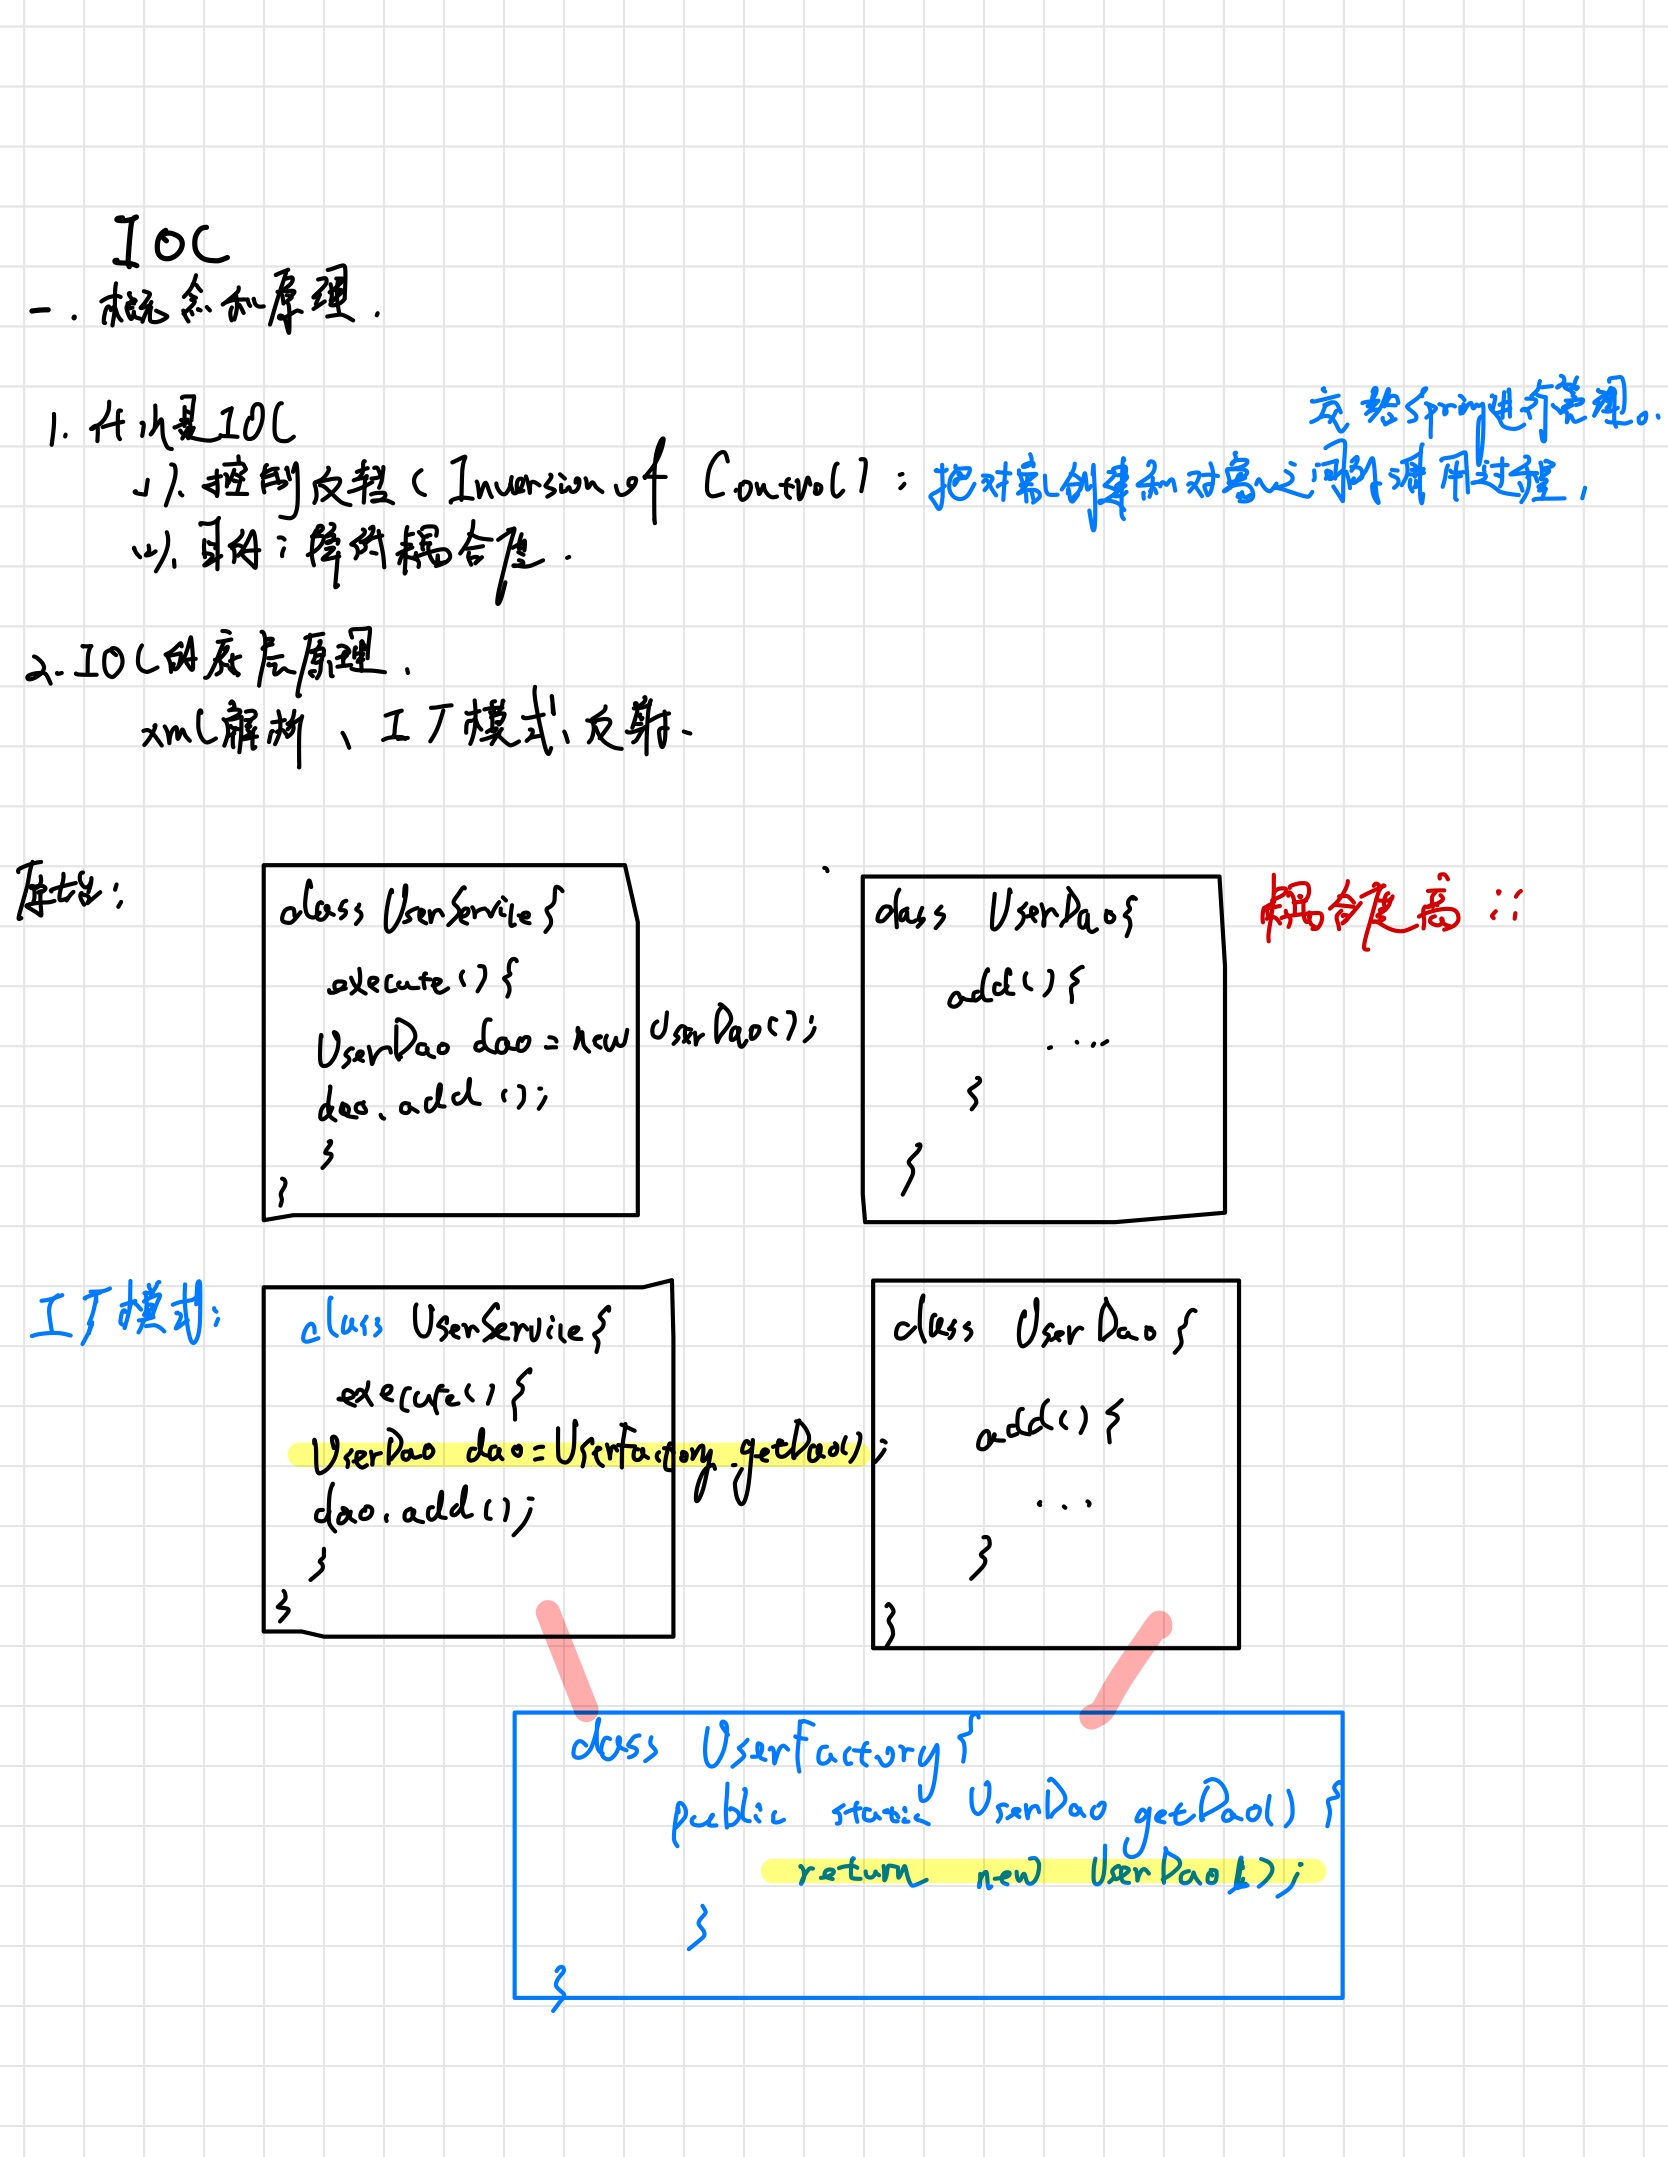 IOC
一. 概念和原理.
1. 什么是IOC
(1). 控制反转 (Inversion of Control): 把对象创建和对象之间的调用过程,
交给Spring进行管理。
(2). 目的: 降低耦合度.
2. IOC的底层原理.
xml解析、工厂模式、反射.
原始:
class UserService{
execute(){
UserDao dao = new UserDao();
dao.add();
}
}
class UserDao{
add(){
....
}
}
耦合度高!!
工厂模式:
class UserService{
execute(){
UserDao dao=UserFactory.getDao();
dao.add();
}
}
class UserDao{
add(){
...
}
}
class UserFactory{
public static UserDao getDao(){
return new UserDao();
}
}